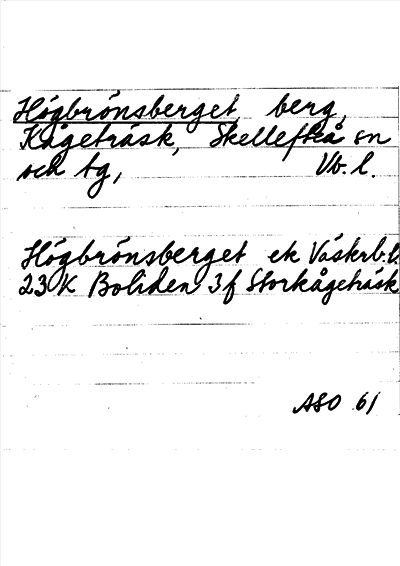 Högbrönsberget, berg,
Kågeträsk, Skellefteå sn
och tg, Vb. l.
Högbrönsberget ek Västerb. l.
23 K Boliden 3 f Storkågeträsk
ASO 61